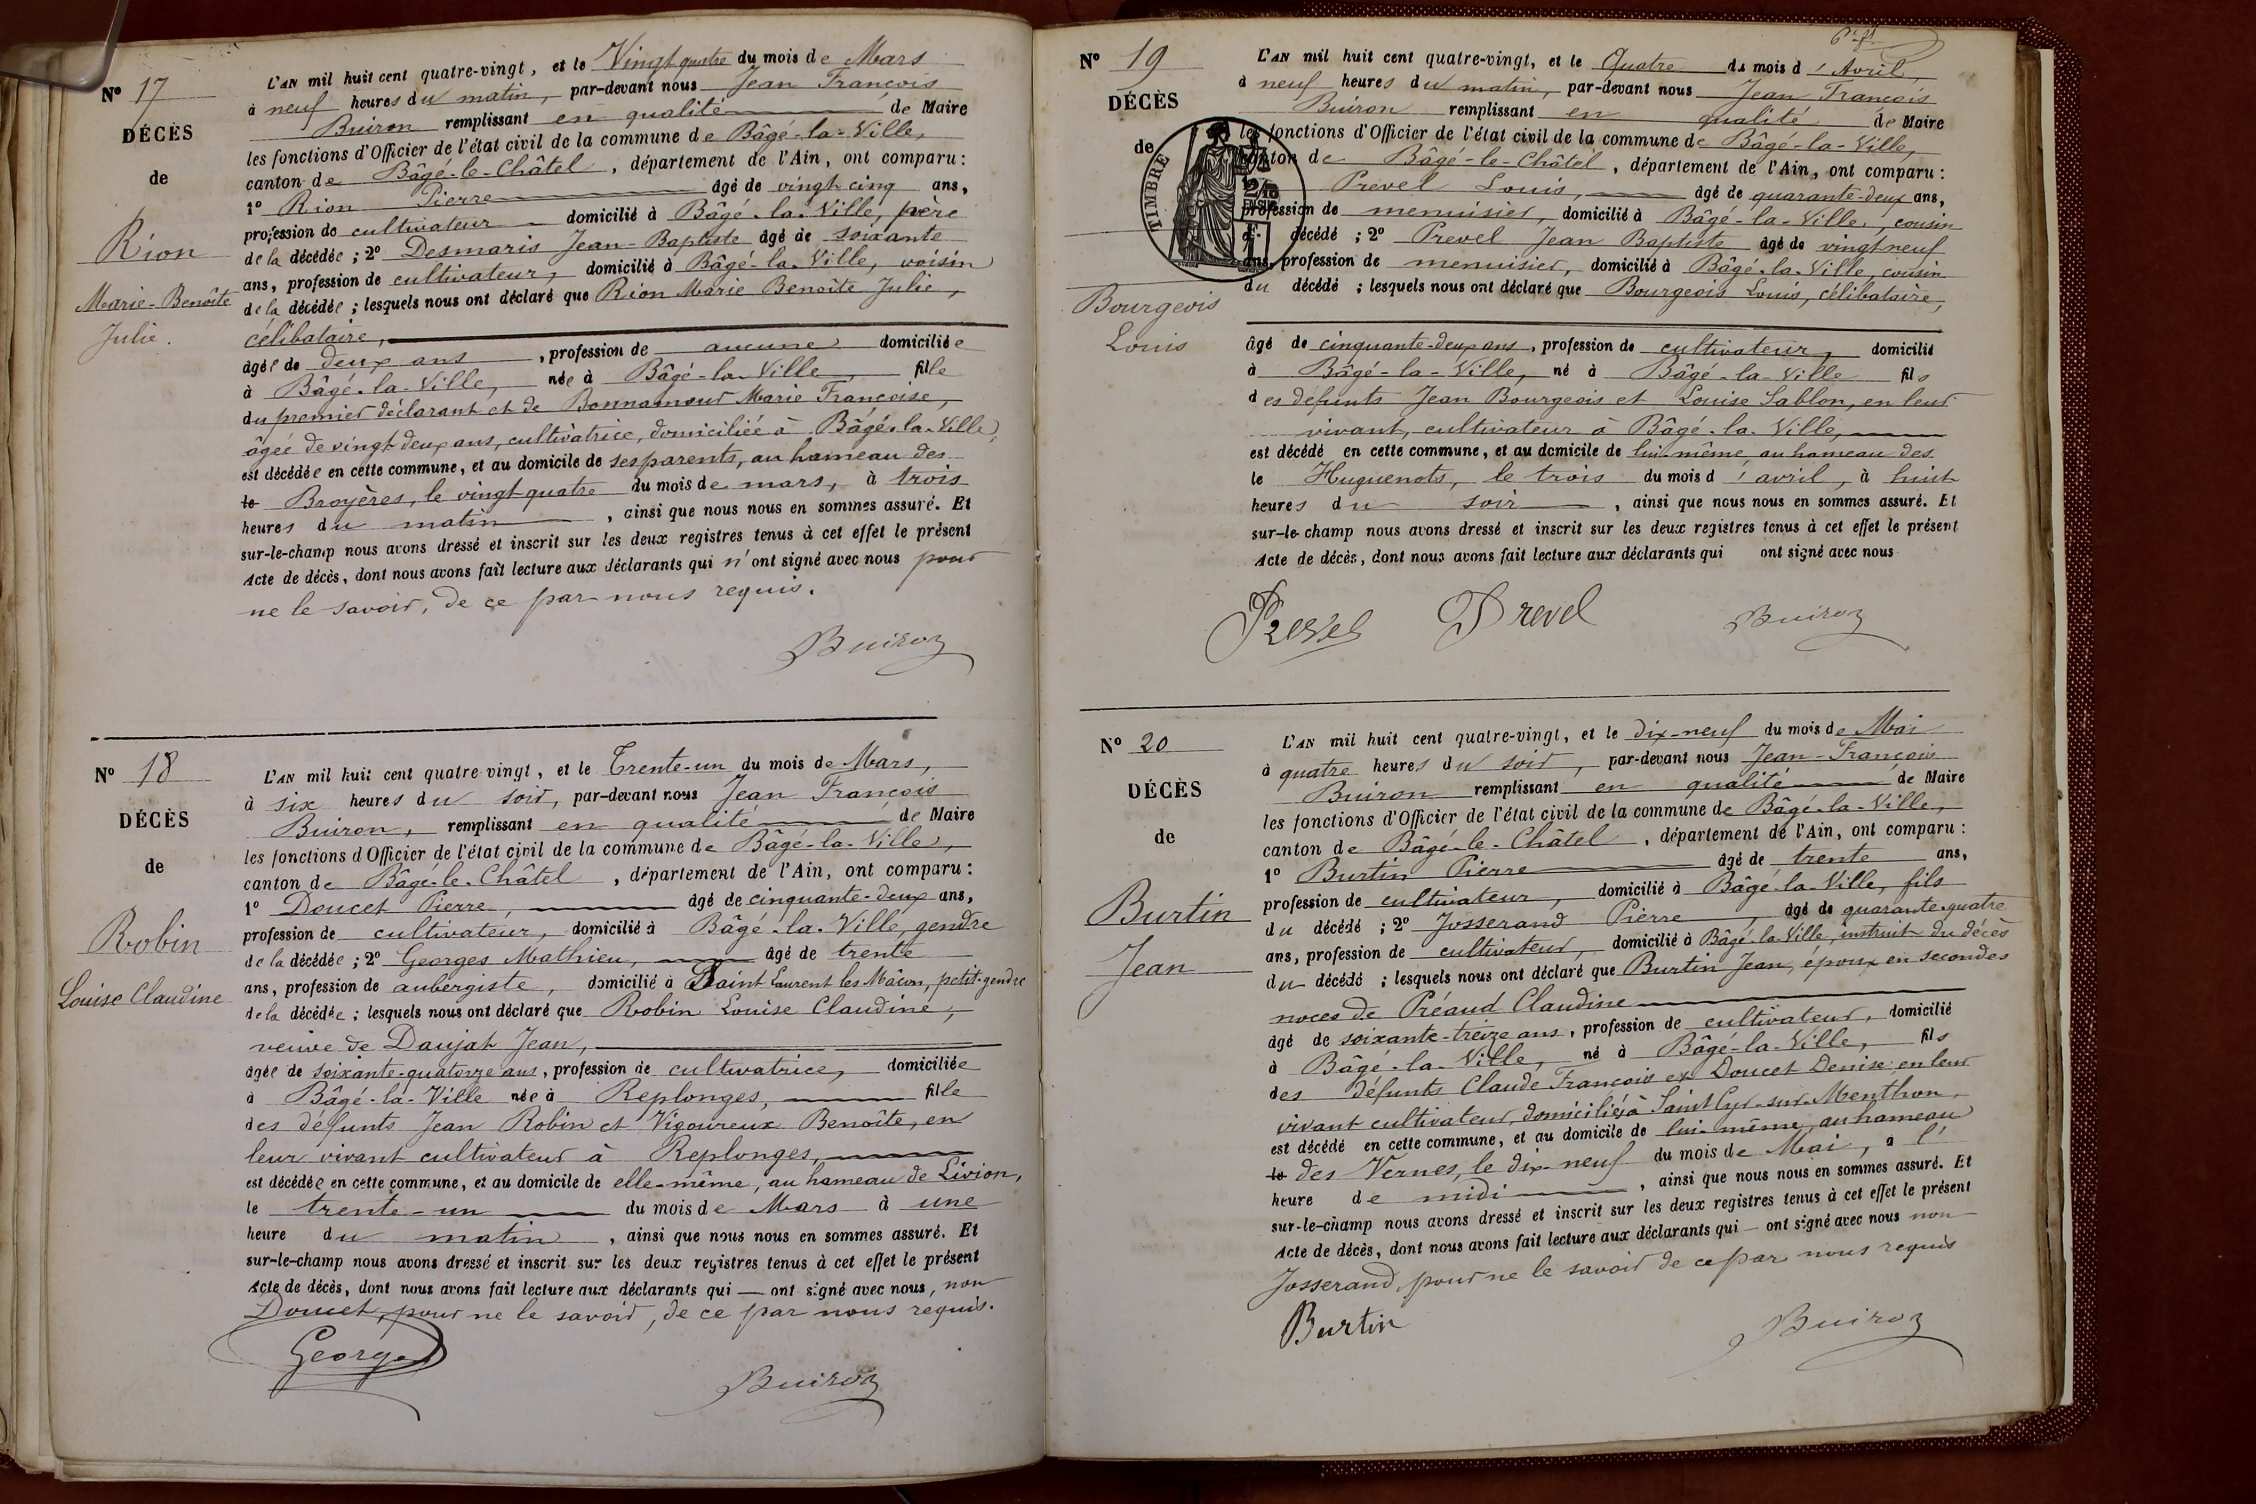 N° 17
DÉCÈS
de
Rion
Marie-Benoîte
Julie.
L'AN mil huit cent quatre-vingt, et le Vingt quatre du mois de Mars
à neuf heures du matin, par-devant nous Jean François
Buiron remplissant en qualité de Maire
les fonctions d'Officier de l'état civil de la commune de Bâgé-la-Ville,
canton de Bâgé-le-Châtel, département de l'Ain, ont comparu :
1° Rion Pierre âgé de vingt cinq ans,
profession de cultivateur domicilié à Bâgé-la-Ville, père
de la décédée ; 2° Desmaris Jean-Baptiste âgé de soixante
ans, profession de cultivateur, domicilié à Bâgé-la-Ville, voisin
de la décédée ; lesquels nous ont déclaré que Rion Marie Benoîte Julie,
célibataire,
âgée de deux ans, profession de aucune domiciliée
à Bâgé-la-Ville, née à Bâgé-la-Ville, fille
du premier déclarant et de Bonnamour Marie Françoise,
âgée de vingt-deux ans, cultivatrice, domiciliée à Bâgé-la-Ville,
est décédée en cette commune, et au domicile de ses parents, au hameau des
le Broyères, le vingt quatre du mois de mars, à trois
heures du matin, ainsi que nous nous en sommes assuré. Et
sur-le-champ nous avons dressé et inscrit sur les deux registres tenus à cet effet le présent
Acte de décès, dont nous avons fait lecture aux déclarants qui n'ont signé avec nous pour
ne le savoir, de ce par nous requis.
Buiron
N° 18
DÉCÈS
de
Robin
Louise Claudine
L'AN mil huit cent quatre-vingt, et le Trente-un du mois de Mars,
à six heures du soir, par-devant nous Jean François
Buiron, remplissant en qualité de Maire
les fonctions d'Officier de l'état civil de la commune de Bâgé-la-Ville,
canton de Bâgé-le-Châtel, département de l'Ain, ont comparu :
1° Doucet Pierre, âgé de cinquante-deux ans,
profession de cultivateur, domicilié à Bâgé-la-Ville, gendre
de la décédée ; 2° Georges Mathieu, âgé de trente
ans, profession de aubergiste, domicilié à Saint Laurent les Mâcon, petit-gendre
de la décédée ; lesquels nous ont déclaré que Robin Louise Claudine,
veuve de Daujat Jean,
âgée de soixante-quatorze ans, profession de cultivatrice, domiciliée
à Bâgé-la-Ville née à Replonges, fille
des défunts Jean Robin et Vigoureux Benoîte, en
leur vivant cultivateur à Replonges,
est décédée en cette commune, et au domicile de elle-même, au hameau de Livion,
le trente-un du mois de Mars à une
heure du matin, ainsi que nous nous en sommes assuré. Et
sur-le-champ nous avons dressé et inscrit sur les deux registres tenus à cet effet le présent
Acte de décès, dont nous avons fait lecture aux déclarants qui ont signé avec nous, non
Doucet, pour ne le savoir, de ce par nous requis.
Georges
Buiron
N° 19
DÉCÈS
de
TIMBRE
Bourgeois
Louis
L'AN mil huit cent quatre-vingt, et le Quatre du mois d'Avril,
à neuf heures du matin, par-devant nous Jean François
Buiron remplissant en qualité de Maire
les fonctions d'Officier de l'état civil de la commune de Bâgé-la-Ville,
canton de Bâgé-le-Châtel, département de l'Ain, ont comparu :
Prevel Louis, âgé de quarante-deux ans,
profession de menuisier, domicilié à Bâgé-la-Ville, cousin
décédé ; 2° Prevel Jean Baptiste âgé de vingt neuf
ans, profession de menuisier, domicilié à Bâgé-la-Ville, cousin
du décédé ; lesquels nous ont déclaré que Bourgeois Louis, célibataire,
âgé de cinquante-deux ans, profession de cultivateur, domicilié
à Bâgé-la-Ville, né à Bâgé-la-Ville fils
des défunts Jean Bourgeois et Louise Sablon, en leur
vivant, cultivateur à Bâgé-la-Ville,
est décédé en cette commune, et au domicile de lui-même au hameau des
le Huguenots, le trois du mois d'avril, à huit
heures du soir, ainsi que nous nous en sommes assuré. Et
sur-le-champ nous avons dressé et inscrit sur les deux registres tenus à cet effet le présent
Acte de décès, dont nous avons fait lecture aux déclarants qui ont signé avec nous
Prevel Prevel Buiron
N° 20
DÉCÈS
de
Burtin
Jean
L'AN mil huit cent quatre-vingt, et le dix-neuf du mois de Mai
à quatre heures du soir, par-devant nous Jean-François
Buiron remplissant en qualité de Maire
les fonctions d'Officier de l'état civil de la commune de Bâgé-la-Ville,
canton de Bâgé-le-Châtel, département de l'Ain, ont comparu :
1° Burtin Pierre âgé de trente ans,
profession de cultivateur, domicilié à Bâgé-la-Ville, fils
du décédé ; 2° Josserand Pierre, âgé de quarante-quatre
ans, profession de cultivateur, domicilié à Bâgé-la-Ville, instruit du décès
du décédé ; lesquels nous ont déclaré que Burtin Jean, époux en secondes
noces de Préaud Claudine
âgé de soixante-treize ans, profession de cultivateur, domicilié
à Bâgé-la-Ville, né à Bâgé-la-Ville, fils
des défunts Claude François et Doucet Denise, en leur
vivant cultivateur, domiciliés à Saint Cyr-sur-Menthon,
est décédé en cette commune, et au domicile de lui-même, au hameau
le des Vernes, le dix-neuf du mois de Mai, à l'
heure de midi, ainsi que nous nous en sommes assuré. Et
sur-le-champ nous avons dressé et inscrit sur les deux registres tenus à cet effet le présent
Acte de décès, dont nous avons fait lecture aux déclarants qui ont signé avec nous non
Josserand, pour ne le savoir de ce par nous requis
Burtin
Buiron